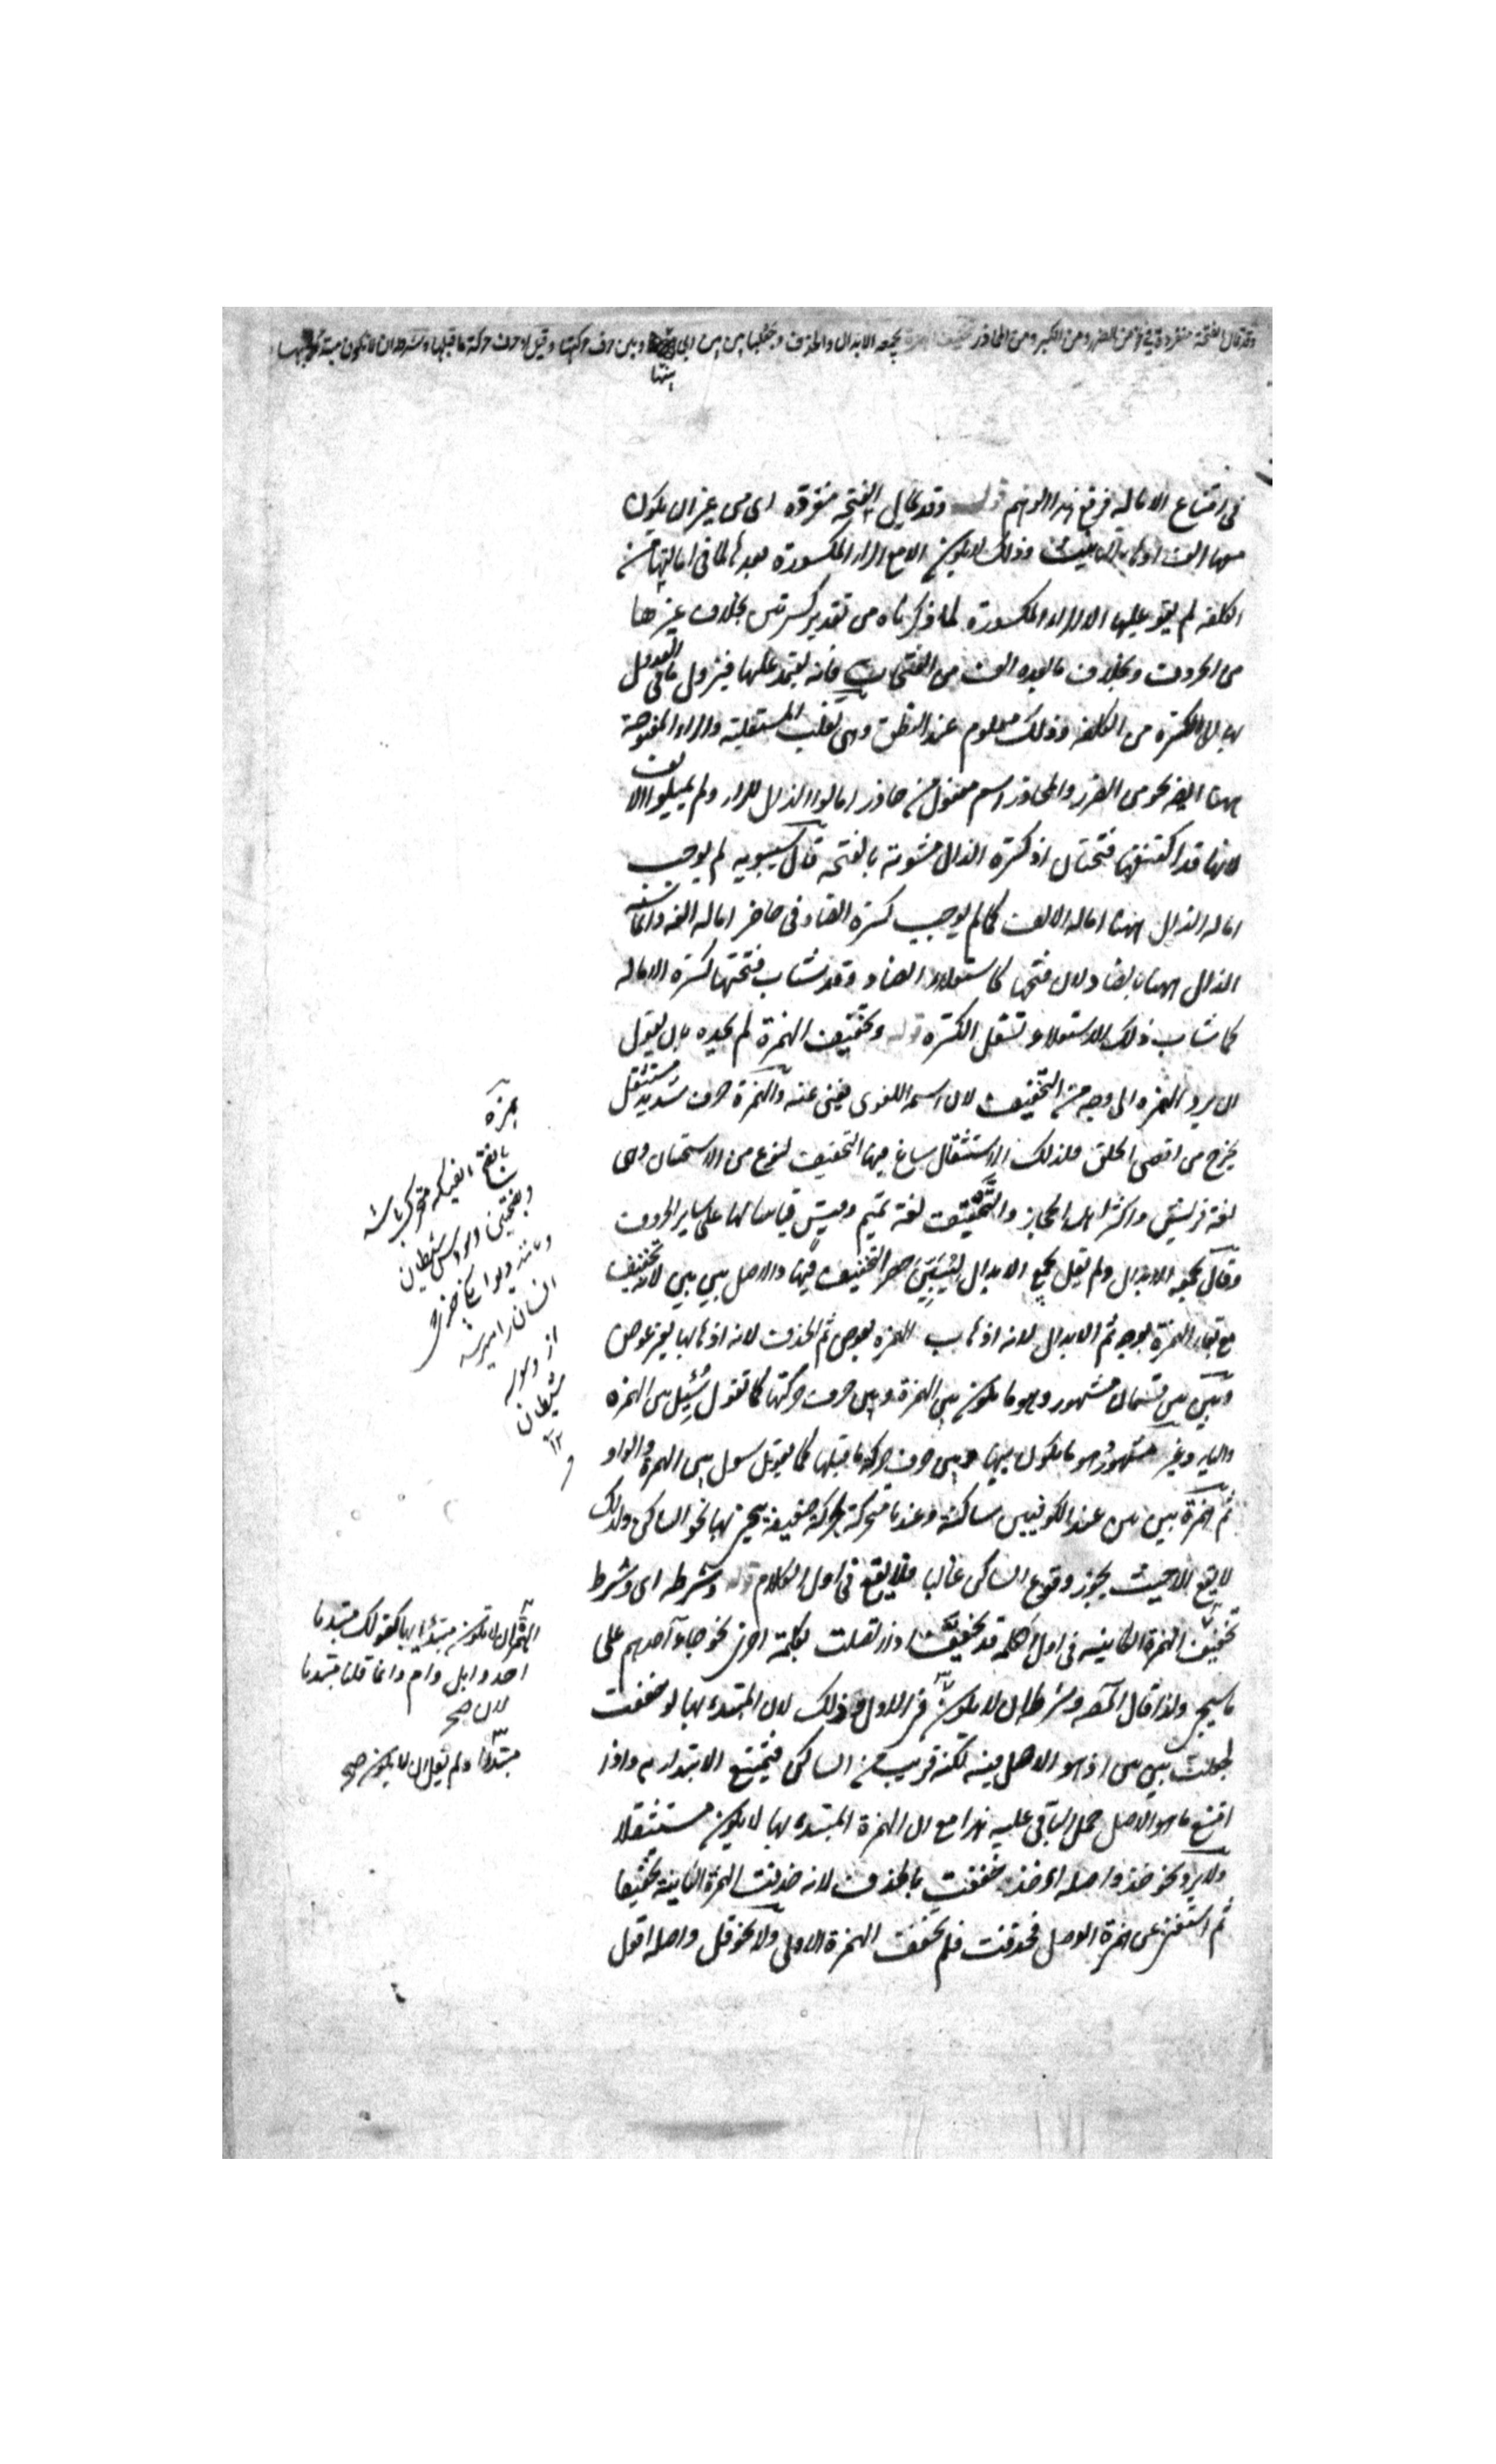 وقد تمال الفتحة منفردة في نحو من الضرر ومن الكبر ومن المحاذر تخفيف الهمزة يجمعه الابدال والحذف وجعلها بين بين اي بينها وبين حرف حركتها وقيل او حرف حركة ما قبلها وشرطه ان لا تكون مبتدءا بها
بينها
في امتناع الامالة فرفع هذا الوهم قوله وقد تمال الفتحة منفردة اى من غير ان يكون
معها الف او هاء التانيث وذلك لا يكون الا مع الراء المكسورة بعدها لما فى امالتها من
الكلفة لم يقو عليها الا الراء المكسورة لما ذكرناه من تقدير كسرتين بخلاف غيرها
من الحروف وبخلاف ما بعده الف من الفتحات فانه يعتمد عليها فيزول ما فى العدول
بها الى الكسرة من الكلفة وذلك معلوم عند النطق وهى تغلب المستعلية والراء المفتوحة
ههنا ايضا نحو من الضرر والمحاذر اسم مفعول من حاذر امالوا الذال للراء ولم يميلوا الالف
لانها قد اكتنفتها فتحتان اذ كسرة الذال مشوبة بالفتحة قال سيبويه لم يوجب
امالة الذال ههنا امالة الالف كما لم يوجب كسرة الضاد فى حاضر امالة الفه وانما شبه
الذال ههنا بالضاد لان فتحها كاستعلاء الضاد وقد شاب فتحتها كسرة الامالة
كما شاب ذلك الاستعلاء تسفل الكسرة قوله وتخفيف الهمزة لم يحده بان يقول
ان يرد الهمزة الى وجه من التخفيف لان اسمه اللغوى يغنى عنه والهمزة حرف شديد مستثقل
يخرج من اقصى الحلق فلذلك الاستثقال ساغ فيها التخفيف لنوع من الاستحسان وهى
لغة قريش واكثر اهل الحجاز والتحقيق لغة تميم وقيس قياسا لها على ساير الحروف
وقال يجمعه الابدال ولم يقل يجمع الابدال ليبين حصر التخفيف فيها والاصل بين بين لانه تخفيف
مع بقاء الهمزة بوجه ثم الابدال لانه اذهاب الهمزة بعوض ثم الحذف لانه اذهابها بغير عوض
وبين بين قسمان مشهور وهو ما يكون بين الهمزة وبين حرف حركتها كما تقول سئل بين الهمزة
والياء وغير مشهور وهو ما يكون بينها وبين حرف حركة ما قبلها كما يقول سول بين الهمزة والواو
ثم همزة بين بين عند الكوفيين ساكنة وعندنا متحركة بحركة ضعيفة ينحى بها نحو الساكن ولذلك
لا يقع الا حيث يجوز وقوع الساكن غالبا فلا يقع فى اول الكلام قوله وشرطه اى وشرط
تخفيف الهمزة الكاينة فى اول الكلمة قد تخفيف اذا اتصلت بكلمة اخرى نحو جاء احدهم على
ما سيجئ ولذا قال المص وشرطه ان لا يكون فى الاول وذلك لان المبتدء بها لو خففت
لجعلت بين بين اذ هو الاصل فيه لكنه قريب من الساكن فيمتنع الابتداء به واذا
امتنع ما هو الاصل حمل الباقى عليه هذا مع ان الهمزة المبتدء بها لا يكون مستثقلا
ولا يرد نحو خذ واصله اءخذ خففت بالحذف لانه حذفت الهمزة الثانية تخفيفا
ثم استغنى عن همزة الوصل فحذفت فلم يخفف الهمزة الاولى ولا نحو قل واصله اقول
همزة
بالفتح الفيكه متحرك باشد
وبفتحتين وسوسه شيطان
انسان را
از وسوسه
شيطان
١٢
الهمزة ان لا تكون مبتدئا بها كقولك مبتدئا
احد وابل وام وانما قلنا مبتدئا
لان صح
مبتدئا ولم يقل ان لا يكون صح